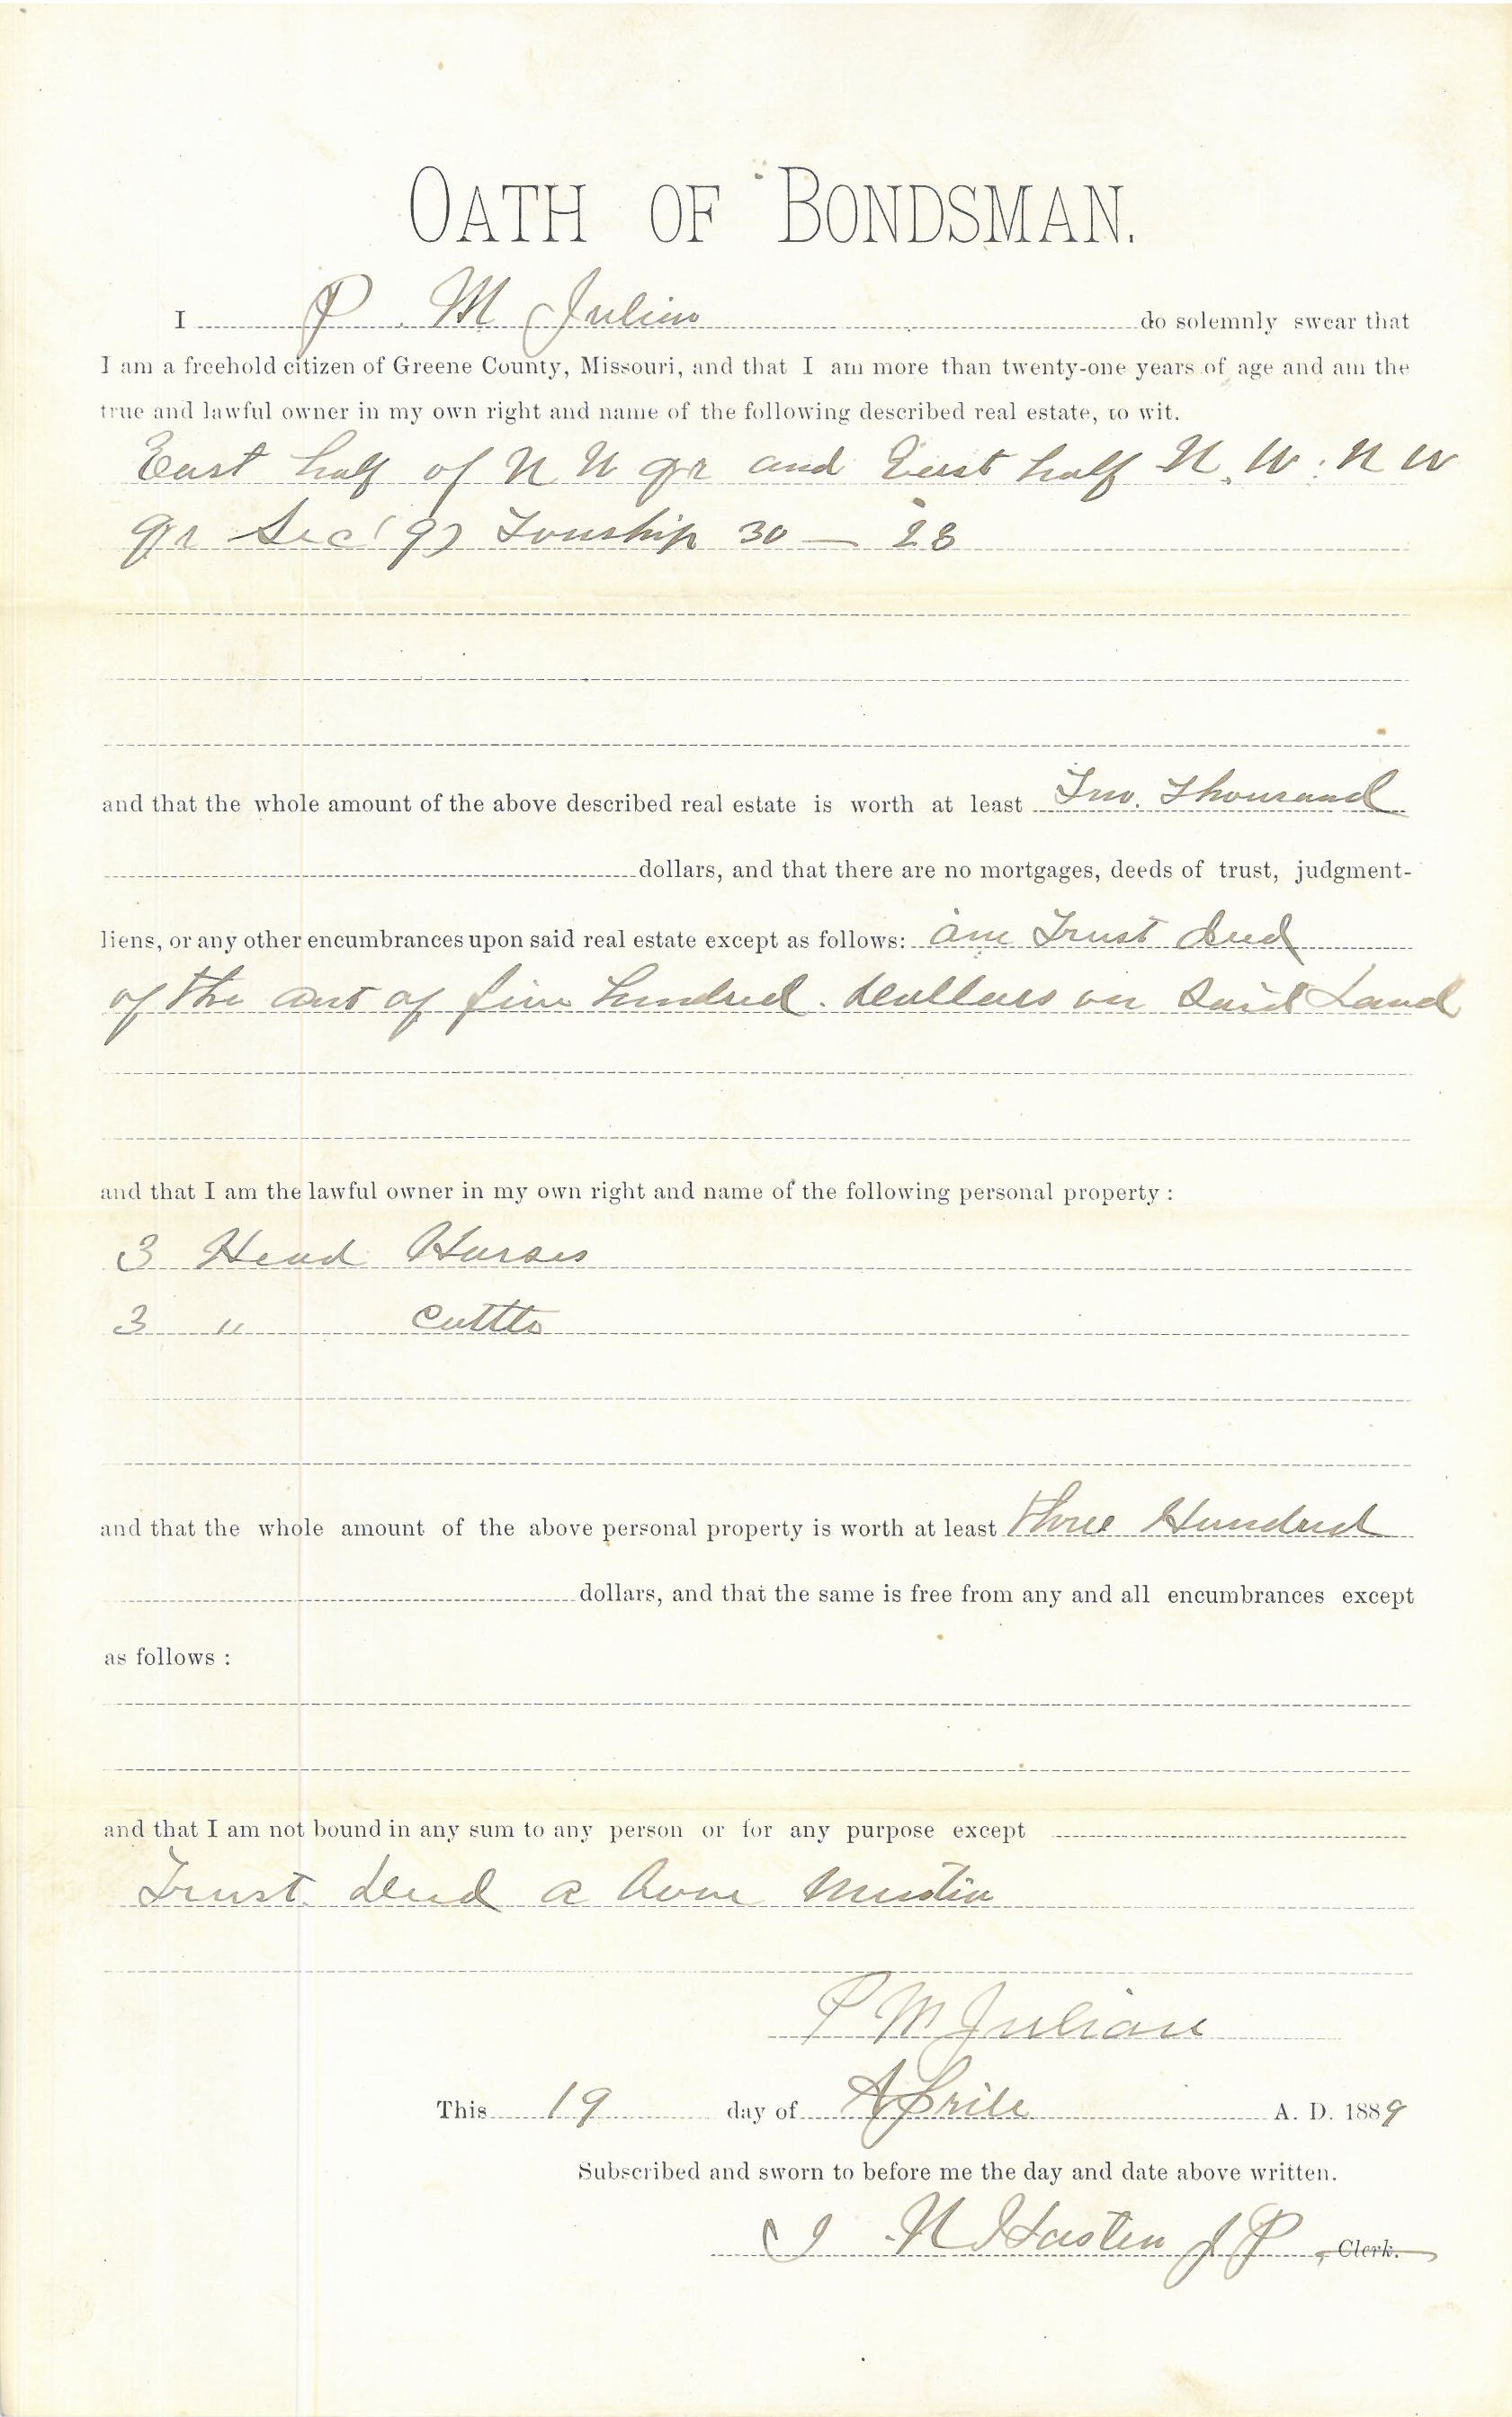 OATH OF BONDSMAN.
I P. M Julian do solemnly swear that
I am a freehold citizen of Greene County, Missouri, and that I am more than twenty-one years of age and am the
true and lawful owner in my own right and name of the following described real estate, to wit.
East half of N W qr and East half N. W. N W
qr Sec (9) Township 30 — 23
and that the whole amount of the above described real estate is worth at least Two. Thousand
dollars, and that there are no mortgages, deeds of trust, judgment-
liens, or any other encumbrances upon said real estate except as follows: Trust deed
of the amt of five hundred. dollars on said Land
and that I am the lawful owner in my own right and name of the following personal property :
3 Head Horses
3 " Cattle
and that the whole amount of the above personal property is worth at least three Hundred
dollars, and that the same is free from any and all encumbrances except
as follows :
and that I am not bound in any sum to any person or for any purpose except
Trust deed a bove
P M Julian
This 19 day of Aprile A. D. 1889
Subscribed and sworn to before me the day and date above written.
N Hasten J P , Clerk.